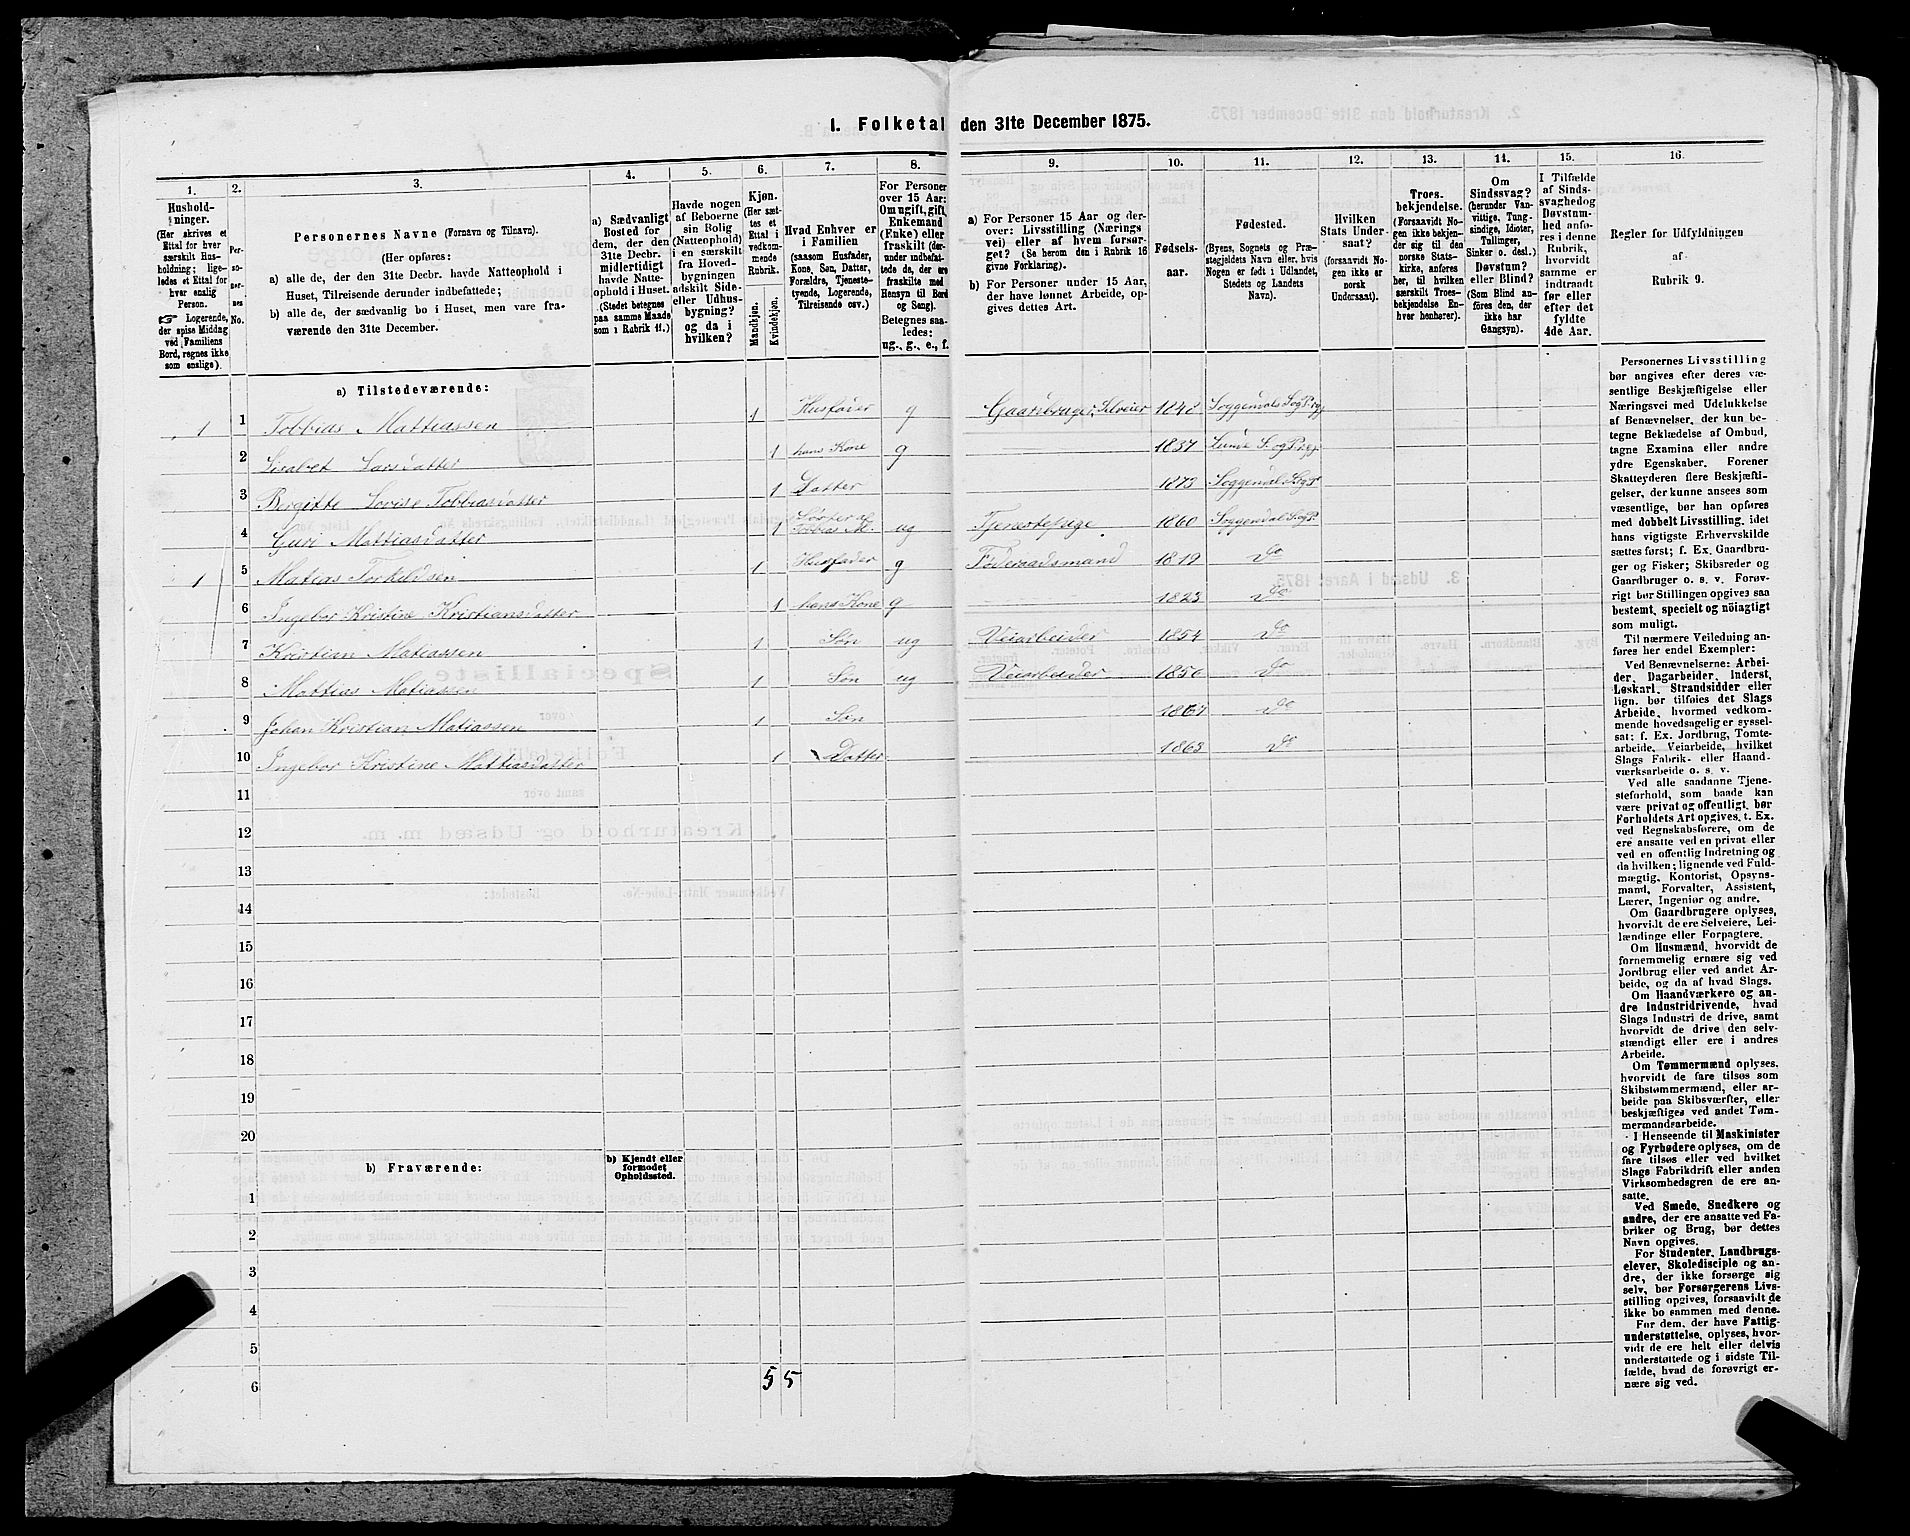 I. Folketal den 31te December 1875.
1. 2. 3. 4. 5. 6. 7. 8. 9. 10. 11. 12. 13. 14. 15. 16.
Hushold-
ninger.
(Her skrives et
Ettal for hver
særskilt Hus-
holdning; lige-
ledes et Ettal for
hver enslig
Person.
☞ Logerende,
der spise Middag
ved Familiens
Bord, regnes ikke
som enslige).
Per-
so-
ner-
nes
No.
Personernes Navne (Fornavn og Tilnavn).
(Her opføres:
a) alle de, der den 31te Decbr. havde Natteophold i
Huset, Tilreisende derunder indbefattede;
b) alle de, der sædvanlig bo i Huset, men vare fra-
værende den 31te December.
a) Sædvanligt
Bosted for
dem, der den
31te Decbr.
midlertidigt
havde Natte-
ophold i Huset.
(Stedet betegnes
paa samme Maade
som i Rubrik 11.)
Havde nogen
af Beboerne
sin Bolig
(Natteophold)
i en særskilt
fra Hoved-
bygningen
adskilt Side-
eller Udhus-
bygning?
og da i
hvilken?
Kjøn.
(Her sæt-
tes et
Ettal i
vedkom-
mende
Rubrik.
Mandkjøn.
Kvindekjøn.
Hvad Enhver er
i Familien
(saasom Husfader,
Kone, Søn, Datter,
Forældre, Tjeneste-
tyende, Logerende,
Tilreisende osv.)
For Personer
over 15 Aar:
Om ugift, gift,
Enkemand
(Enke) eller
fraskilt (der-
under indbefat-
tede de, der ere
fraskilte med
Hensyn til Bord
og Seng).
Betegnes saa-
ledes:
ug., g., e., f.
a) For Personer 15 Aar og der-
over: Livsstilling (Nærings
vei) eller af hvem forsør-
get? (Se herom den i Rubrik 16
givne Forklaring).
b) For Personer under 15 Aar,
der have lønnet Arbeide, op-
gives dettes Art.
Fødsels-
aar.
Fødested.
(Byens, Sognets og Præ-
stegjeldets Navn eller, hvis
Nogen er født i Udlandet,
Stedets og Landets
Navn).
Hvilken
Stats Under-
saat?
(forsaavidt No-
gen ikke er
norsk
Undersaat).
Troes-
bekjendelse.
(Forsaavidt No-
gen ikke bekjen-
der sig til den
norske Stats-
kirke, anføres
her, til hvilken
særskilt Troes-
bekjendelse En-
hver henhører).
Om
Sindssvag?
(herunder Van-
vittige, Tung-
sindige, Idioter,
Tullinger,
Sinker o. desl.)
Døvstum?
eller Blind?
(Som Blind an-
føres den, der
ikke har
Gangsyn).
I Tilfælde
af Sinds-
svaghed og
Døvstum-
hed anfø-
res i denne
Rubrik,
hvorvidt
samme er
indtraadt
før eller
efter det
fyldte
4de Aar.
Regler for Udfyldningen
af
Rubrik 9.
a) Tilstedeværende:
1 1 Tobbias Mattiassen 1 Husfader g Gaardbruger, Selveier 1842 Soggendals Sog
2 Lisabet Larsdatter 1 hans Kone g 1837 Lunde S. og P.
3 Bergitte Lovise Tobbiasdatter 1 Datter 1873 Soggendal
4 Guri Mattiasdatter 1 Tobbias M. ug Tjenestepige 1860 Soggendal S. og P.
1 5 Matias Torkildsen 1 Husfader g Føderaadsmand 1819 Do
6 Ingebor Kristine Kristiansdatter 1 hans Kone g 1823 Do
7 Kristian Matiassen 1 Søn ug Veiarbeider 1854 Do
8 Mattias Matiassen 1 Søn ug Veiarbeider 1850 Do
9 Johan Kristian Matiassen 1 Søn 1867 Do
10 Ingebor Kristine Mattiasdatter 1 Datter 1863 Do
11
12
13
14
15
16
17
18
19
20
b) Fraværende:
b) Kjendt eller
formodet
Opholdssted.
1
2
3
4
5
6
5 5
Personernes Livsstilling
bør angives efter deres væ-
sentlige Beskjæftigelse eller
Næringsvei med Udelukkelse
af Benævnelser, der kun be-
tegne Beklædelse af Ombud,
tagne Examina eller andre
ydre Egenskaber. Forener
Skatteyderen flere Beskjæfti-
gelser, der kunne ansees som
væsentlige, bør han opføres
med dobbelt Livsstilling, idet
hans vigtigste Erhvervskilde
sættes først; f. Ex. Gaardbru-
ger og Fisker; Skibsreder og
Gaardbruger o. s. v. Forøv-
rigt bør Stillingen opgives saa
bestemt, specielt og nöiagtigt
som muligt.
Til nærmere Veiledning an-
føres her endel Exempler:
Ved Benævnelserne: Arbei-
der, Dagarbeider, Inderst,
Løskarl, Strandsidder eller
lign. bør tilføies det Slags
Arbeide, hvormed vedkom-
mende hovedsagelig er syssel-
sat; f. Ex. Jordbrug, Tomte-
arbeide, Veiarbeide, hvilket
Slags Fabrik- eller Haand-
værksarbeide o. s. v.
Ved alle saadanne Tjene-
steforhold, som baade kan
være privat og offentligt, bør
Forholdets Art opgives, t. Ex.
ved Regnskabsførere, om de
ere ansatte ved en privat eller
ved en offentlig Indretning og
da hvilken; lignende ved Fuld-
mægtig, Kontorist, Opsyns-
mand, Forvalter, Assistent,
Lærer, Ingeniør og andre.
Om Gaardbrugere oplyses,
hvorvidt de ere Selveiere, Lei-
lændinge eller Forpagtere.
Om Husmænd, hvorvidt de
fornemmelig ernære sig ved
Jordbrug eller ved andet Ar-
beide, og da af hvad Slags.
Om Haandværkere og an-
dre Industridrivende, hvad
Slags Industri de drive, samt
hvorvidt de drive den selv-
stændigt eller ere i andres
Arbeide.
Om Tømmermænd oplyses,
hvorvidt de fare tilsøs som
Skibstømmermænd, eller ar-
beide paa Skibsværfter, eller
beskjæftiges ved andet Tøm-
mermandsarbeide.
I Henseende til Maskinister
og Fyrbødere oplyses, om de
fare tilsøs eller ved hvilket
Slags Fabrikdrift eller anden
Virksomhedsgren de ere an-
satte.
Ved Smede, Snedkere og
andre, der ere ansatte ved Fa-
briker og Brug, bør dettes
Navn opgives.
For Studenter, Landbrugs-
elever, Skoledisciple og an-
dre, der ikke forsørge sig
selv, bør Forsørgerens Livs-
stilling opgives, forsaavidt de
ikke bo sammen med denne.
For dem, der have Fattig-
understøttelse, oplyses, hvor-
vidt de ere helt eller delvis
understøttede og i sidste Til-
fælde, hvad de forøvrigt er-
nære sig ved.